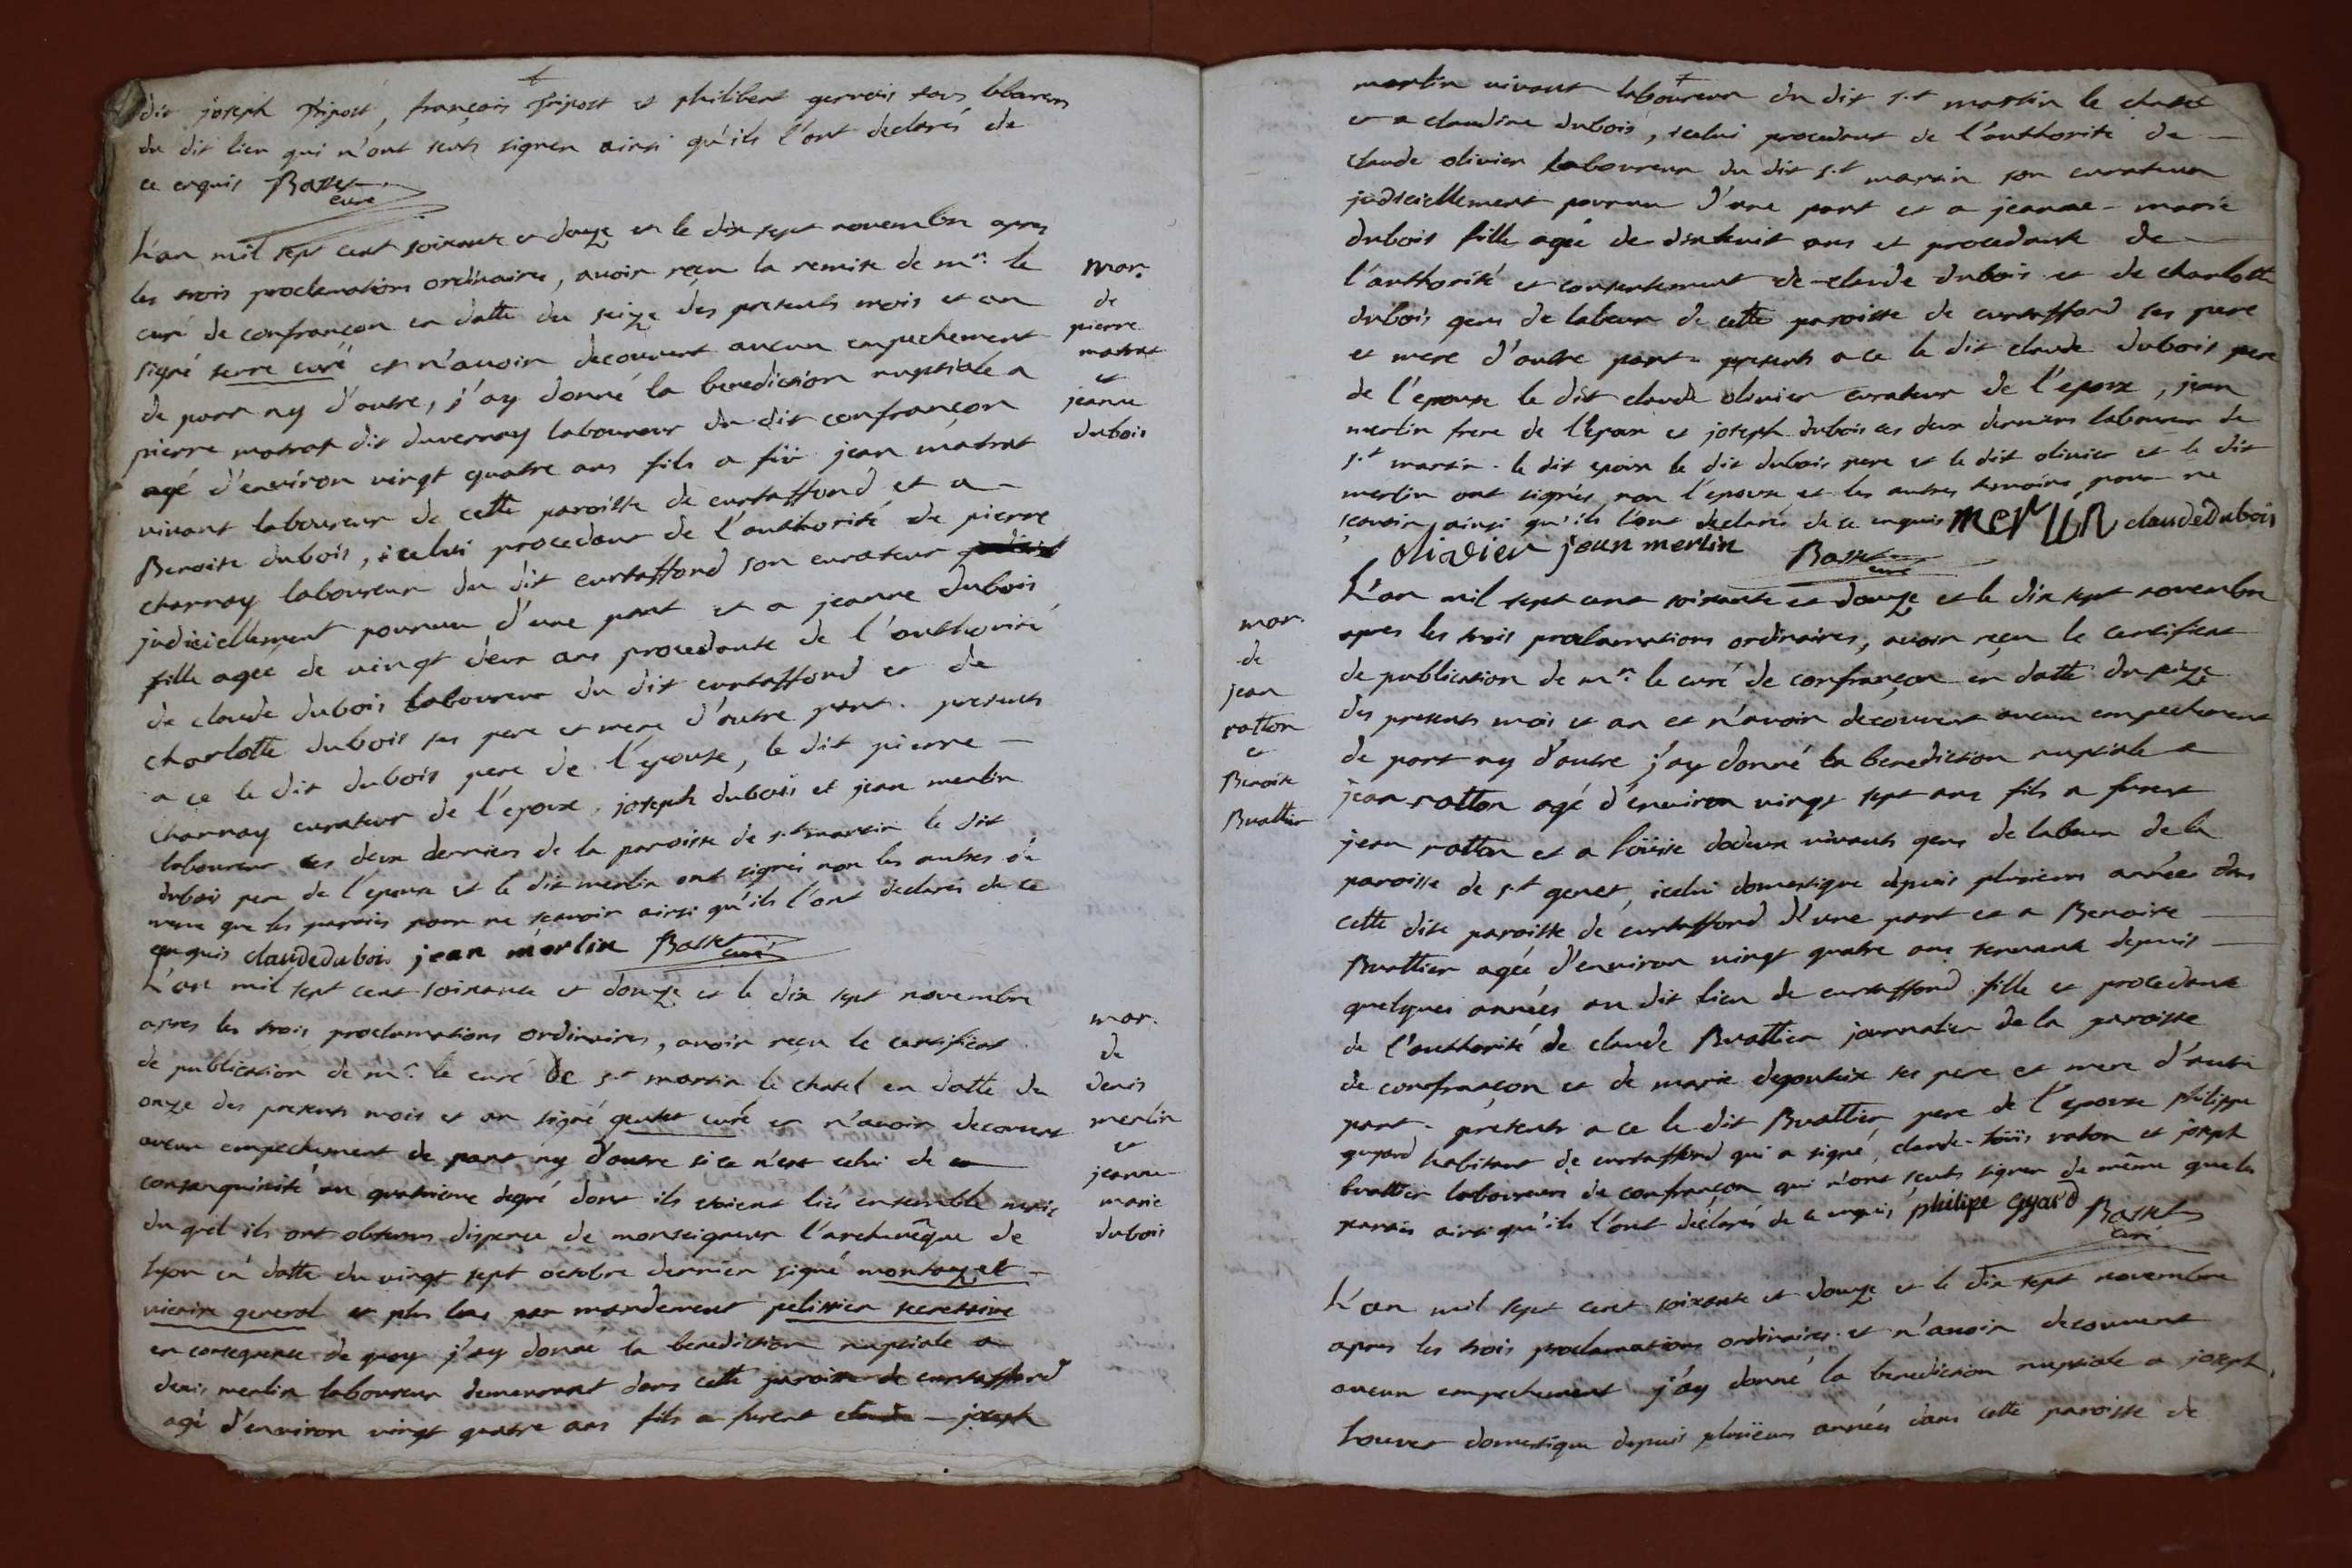 dit joseph Tripost, françois Tripost et philibert gervais tous laboureurs
du dit lieu qui n'ont sçeuts signer ainsi qu'ils l'ont declarés de
ce enquis Basset
curé
L'an mil sept cent soixante et douze et le dix sept novembre apres
les trois proclamations ordinaires, avoir reçu la remise de mr. le
curé de confrançon en datte du seize des presents mois et an
signé serre curé et n'avoir decouvert aucun empechement
de part ny d'autre, j'ay donné la benediction nuptiale a
pierre matrat dit duvernay laboureur du dit confrançon
agé d'environ vingt quatre ans fils a fût jean matrat
vivant laboureur de cette paroisse de curtaffond et a
Benoite dubois, icelui procedant de l'authorité de pierre
charnay laboureur du dit curtaffond son curateur
judiciellement pourvu d'une part et a jeanne dubois
fille agée de vingt deux ans procedante de l'authorité
de claude dubois laboureur du dit curtaffond et de
charlotte dubois ses pere et mere d'autre part. presents
a ce le dit dubois pere de l'epouse, le dit pierre
charnay curateur de l'epoux, joseph dubois et jean merlin
laboureur ces deux derniers de la paroisse de s.t martin le dit
dubois pere de l'epouse et le dit merlin ont signés non les autres de
meme que les parties pour ne scavoir ainsi qu'ils l'ont declarés de ce
enquis claudedubois jean merlin Basset curé
mar.
de
pierre
matrat
et
jeanne
dubois
L'an mil sept cent soixante et douze et le dix sept novembre
apres les trois proclamations ordinaires, avoir reçu le certificat
de publication de mr. le curé de s.t martin le chatel en datte du
onze des presents mois et an signé curé et n'avoir decouvert
aucun empechement de part ny d'autre si ce n'est celui de
consanguinité au quatrieme degré dont ils etoient liés ensemble
du quel ils ont obtenus dispense de monseigneur l'archevêque de
lyon en datte du vingt sept octobre dernier signé montazet
vicaire general et plus bas par mandement pelissier secretaire
en consequence de quoy j'ay donné la benediction nuptiale a
denis merlin laboureur demeurant dans cette paroisse de curtaffond
agé d'environ vingt quatre ans fils a furent claude joseph
mar.
de
denis
merlin
et
jeanne
marie
dubois
merlin vivant laboureur du dit s.t martin le chatel
et a claudine dubois, icelui procedant de l'authorité de
claude olivier laboureur du dit s.t martin son curateur
judiciellement pourvu d'une part et a jeanne-marie
dubois fille agée de dixhuit ans et procedante de
l'authorité et consentement de claude dubois et de charlotte
dubois gens de labeur de cette paroisse de curtaffond ses pere
et mere d'autre part. presents a ce le dit claude dubois pere
de l'epouse le dit claude olivier curateur de l'epoux, jean
merlin frere de l'epoux et joseph dubois ces deux derniers laboureur de
s.t martin. le dit epoux le dit dubois pere et le dit olivier et le dit
merlin ont signés non l'epouse et les autres temoins pour ne
scavoir, ainsi qu'ils l'ont declarés de ce enquis merlin claudedubois
olivier jean merlin Basset curé
L'an mil sept cent soixante et douze et le dix sept novembre
apres les trois proclamations ordinaires, avoir reçu le certificat
de publication de mr. le curé de confrançon en datte du seize
des presents mois et an et n'avoir decouvert aucun empechement
de part ny d'autre j'ay donné la benediction nuptiale a
jean ratton agé d'environ vingt sept ans fils a furent
jean ratton et a loüise vivants gens de labeur de la
paroisse de s.t genet, icelui domestique depuis plusieurs années dans
cette dite paroisse de curtaffond d'une part et a Benoite
Buattier agée d'environ vingt quatre ans servante depuis
quelques années au dit lieu de curtaffond fille et procedante
de l'authorité de claude Buattier journalier de la paroisse
de confrançon et de marie degouteix ses pere et mere d'autre
part. présents a ce le dit Buattier pere de l'epouse philippe
guyard habitant de curtaffond qui a signé, claude-loüis raton et joseph
buattier laboureurs de confrançon qui n'ont sçeuts signer de même que les
parties ainsi qu'ils l'ont declarés de ce enquis philipe Gyard Basset
curé
mar.
de
jean
ratton
et
Benoite
Buattier
L'an mil sept cent soixante et douze et le dix sept novembre
apres les trois proclamations ordinaires et n'avoir decouvert
aucun empechement j'ay donné la benediction nuptiale a joseph
Louvet domestique depuis plusieurs années dans cette paroisse de